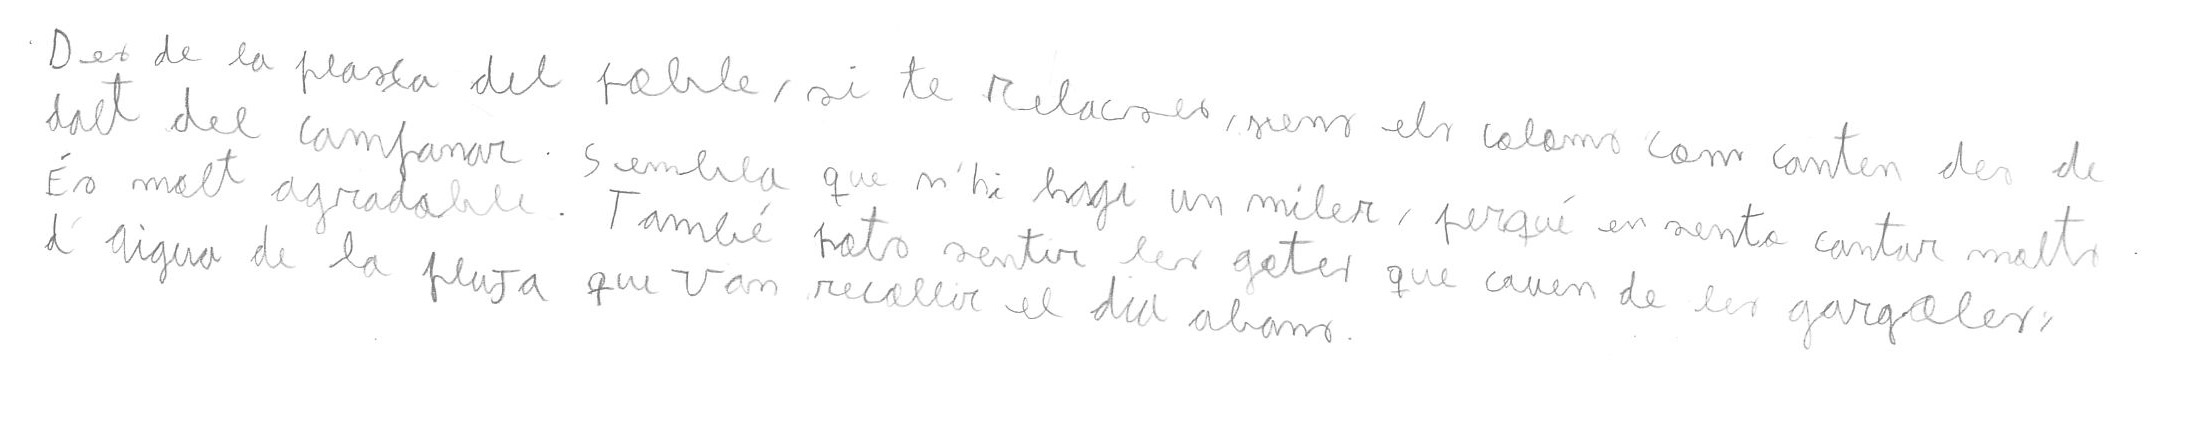 Des de la plassa del poble, si te relacses, sens els coloms com canten des de
dalt del campanar. Sembla que n'hi hagi un miler, perqué en sento cantar molts.
És molt agradable. També pots sentir les gotes que cauen de les gargoles,
d'aigua de la pluja que van recollir el dia abans.